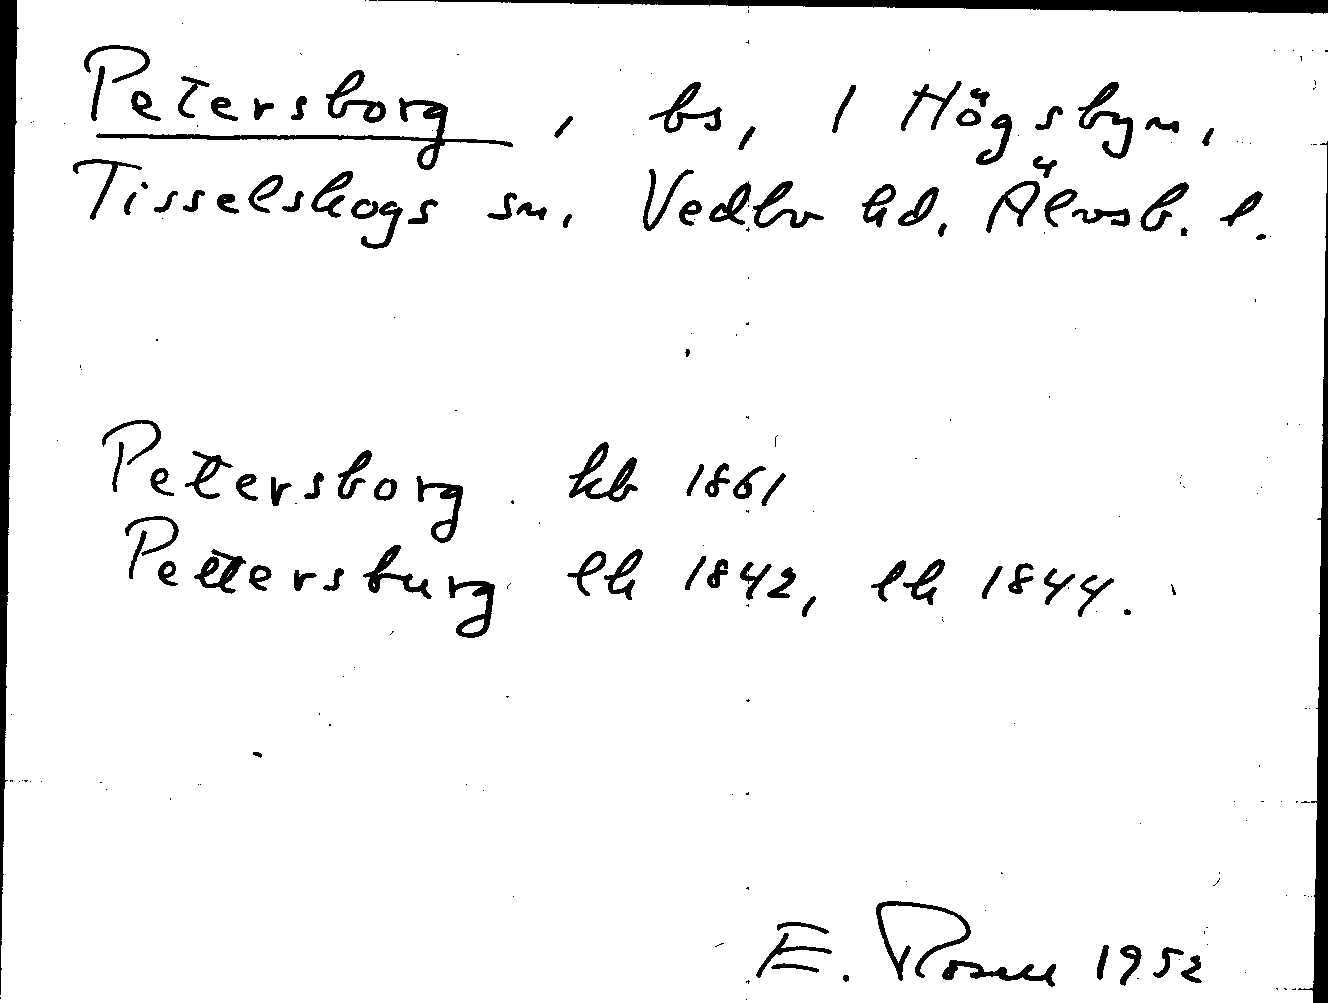 Petersborg, bs, 1 Högsbyn,
Tisselskogs sn, Vedbo hd, Älvsb. l.
Petersborg kb 1861
Pettersburg lh 1842, lh 1844.
E. Rosell 1952